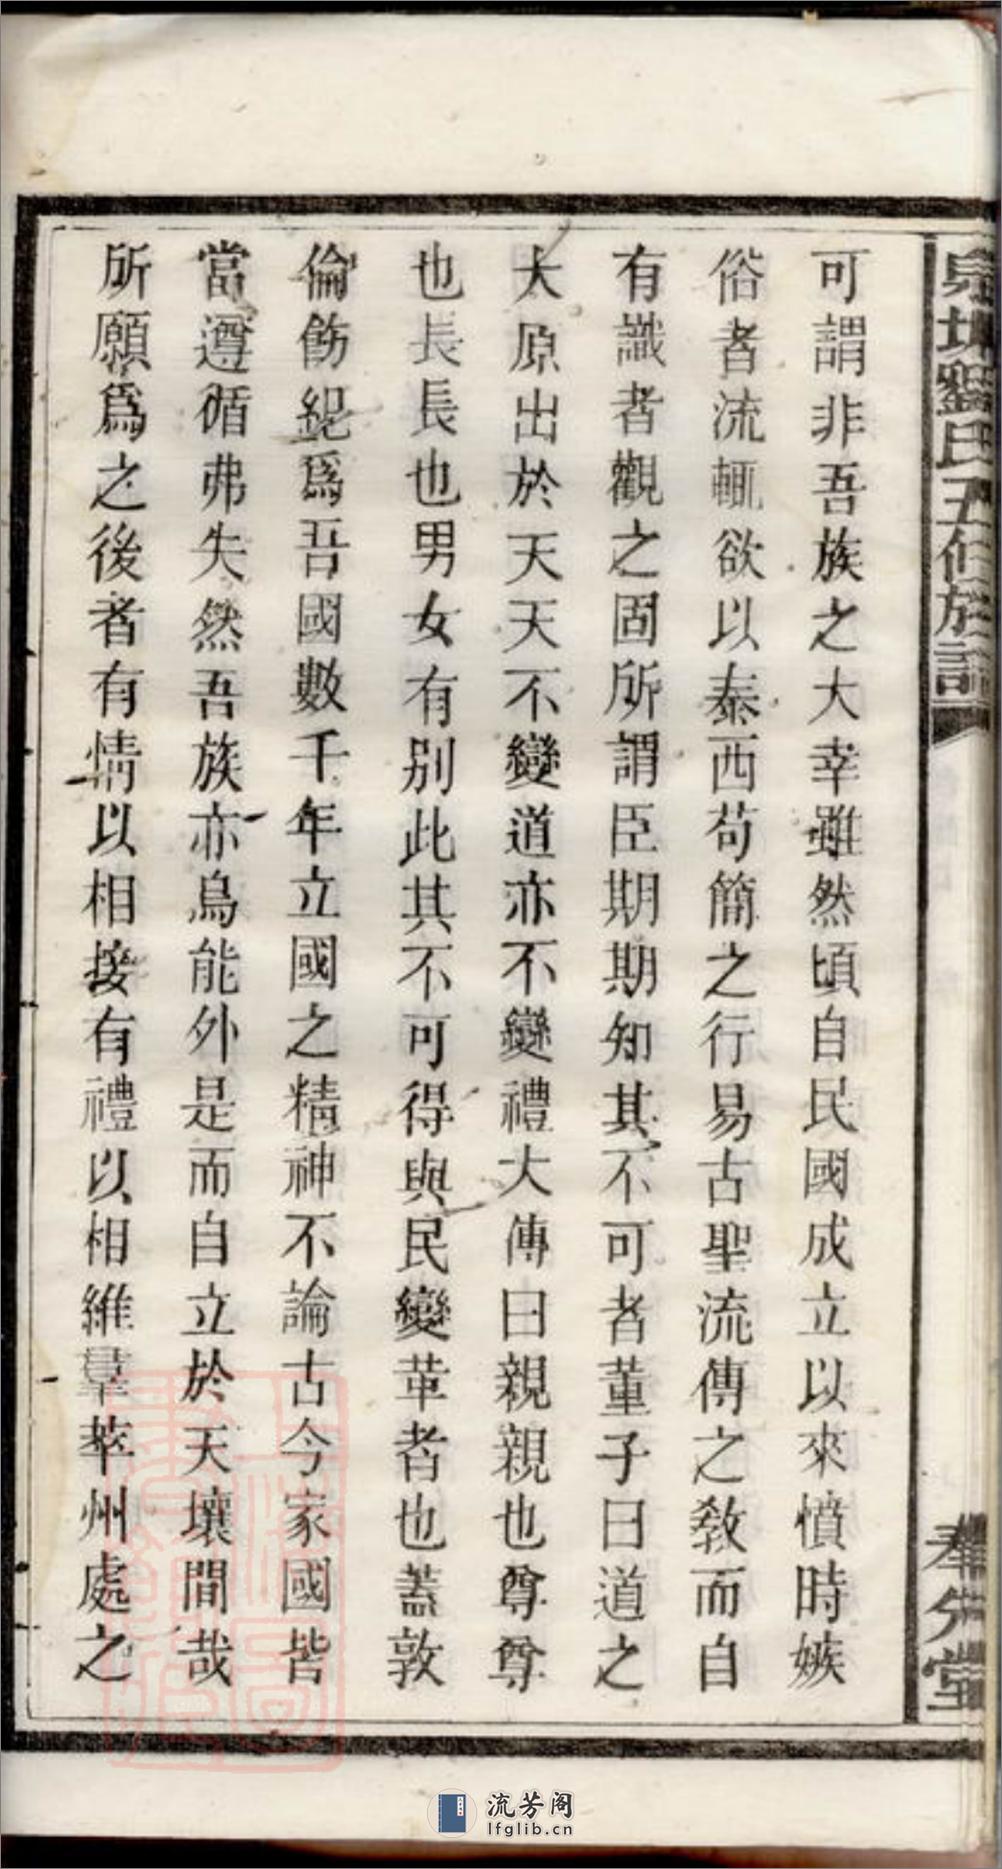 可謂非吾族之大幸雖然頃自民國成立以來憤時嫉
俗者流輒欲以泰西苟簡之行易古聖流傳之教而自
有識者觀之固所謂臣期期知其不可者董子曰道之
大原出於天天不變道亦不變禮大傳曰親親也尊尊
也長長也男女有別此其不可得與民變革者也蓋敦
倫飭紀爲吾國數千年立國之精神不論古今家國皆
當遵循弗失然吾族亦烏能外是而自立於天壤間哉
所願爲之後者有情以相接有禮以相維羣萃州處之
劉氏五修族譜
奉先堂
流芳阁
lfglib.cn